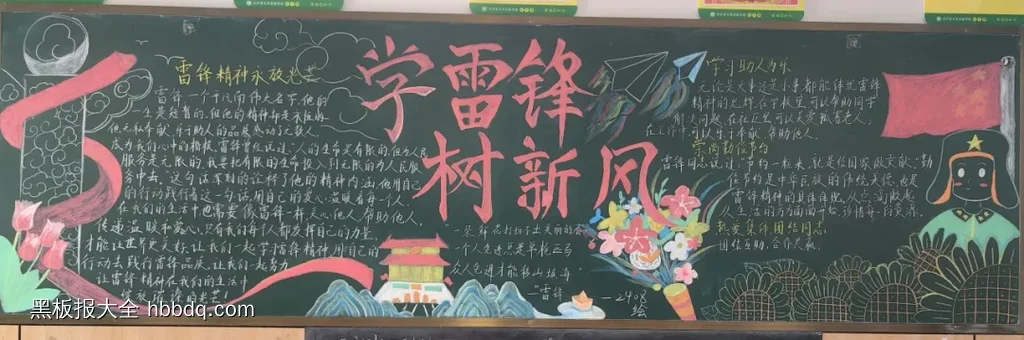 学雷锋
树新风
雷锋精神永放光芒
雷锋,一个平凡而伟大名字,他的
一生是短暂的,但他的精神却是永恒的
他无私奉献、乐于助人的品质感动了无数人,
成为我们心中的楷模,雷锋曾经说过:人的生命是有限的,但为人民
服务是无限的,我要把有限的生命投入到无限的为人民服
务中去,这句话深刻的诠释了他的精神内涵,他用自己
的行动践行着这一句话,用自己的爱心温暖着每一个人
在我们的生活中也需要像雷锋一样关心他人,帮助他人
传递温暖和爱心,只有我们每个人都发挥自己的力量
才能让世界更美好,让我们一起学习雷锋精神,用自己的
行动去践行雷锋品质,让我们一起努力
让雷锋精神在我们的生活中
的光芒
一朵鲜花打扮不出美丽的春天
一个人先进总是单枪匹马
众人先进才能移山填海
——雷锋
—2408
绘
学习助人为乐
无论是大事还是小事都能体现雷锋
精神的光辉,在学校里可以帮助同学
解决问题,在社区里可以关爱孤寡老人,
在工作中可以乐于奉献,帮助他人。
崇尚勤俭节约
雷锋同志说过:节约一粒米,就是给国家做贡献,勤
俭节约是中华民族的传统美德,也是
雷锋精神的具体体现,从
从生活的方方面面开始,珍惜每一份资源。
热爱集体团结同志
团结互助、合作共赢
黑板报大全 hbbdq.com